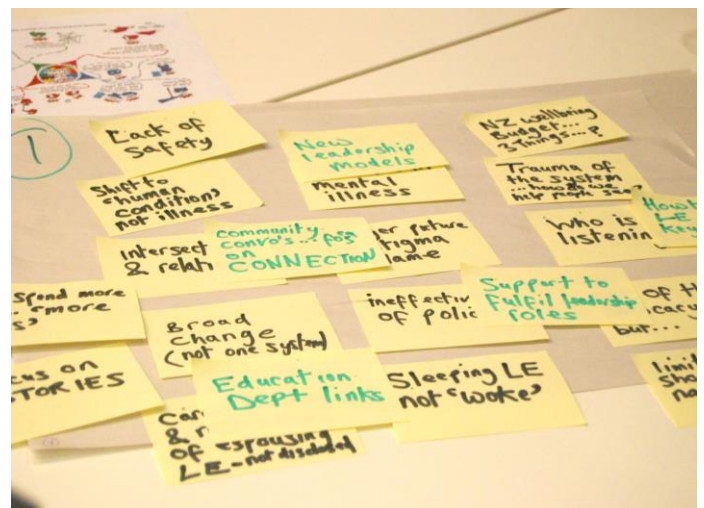 1
Lack of
Safety
New
leadership
models
NZ wellbeing
Budget...
3 Things...?
Shift to
"human
condition"
not illness
mental
illness
Trauma of
the system
...how do we
help people see?
Intersect
& relat
community
convo's
on
CONNECTION
er picture
tigma
lame
who is
listenin
How t
LE
Key
Spend more
"more
ineffectiv
of polic
Support to
fulfil leadership
roles
of th
but...
Broad
change
(not one system)
cus on
TORIES
Education
Dept links
Sleeping LE
not "woke"
limi
sho
na
Car
& r
of espousing
LE - not disclosed